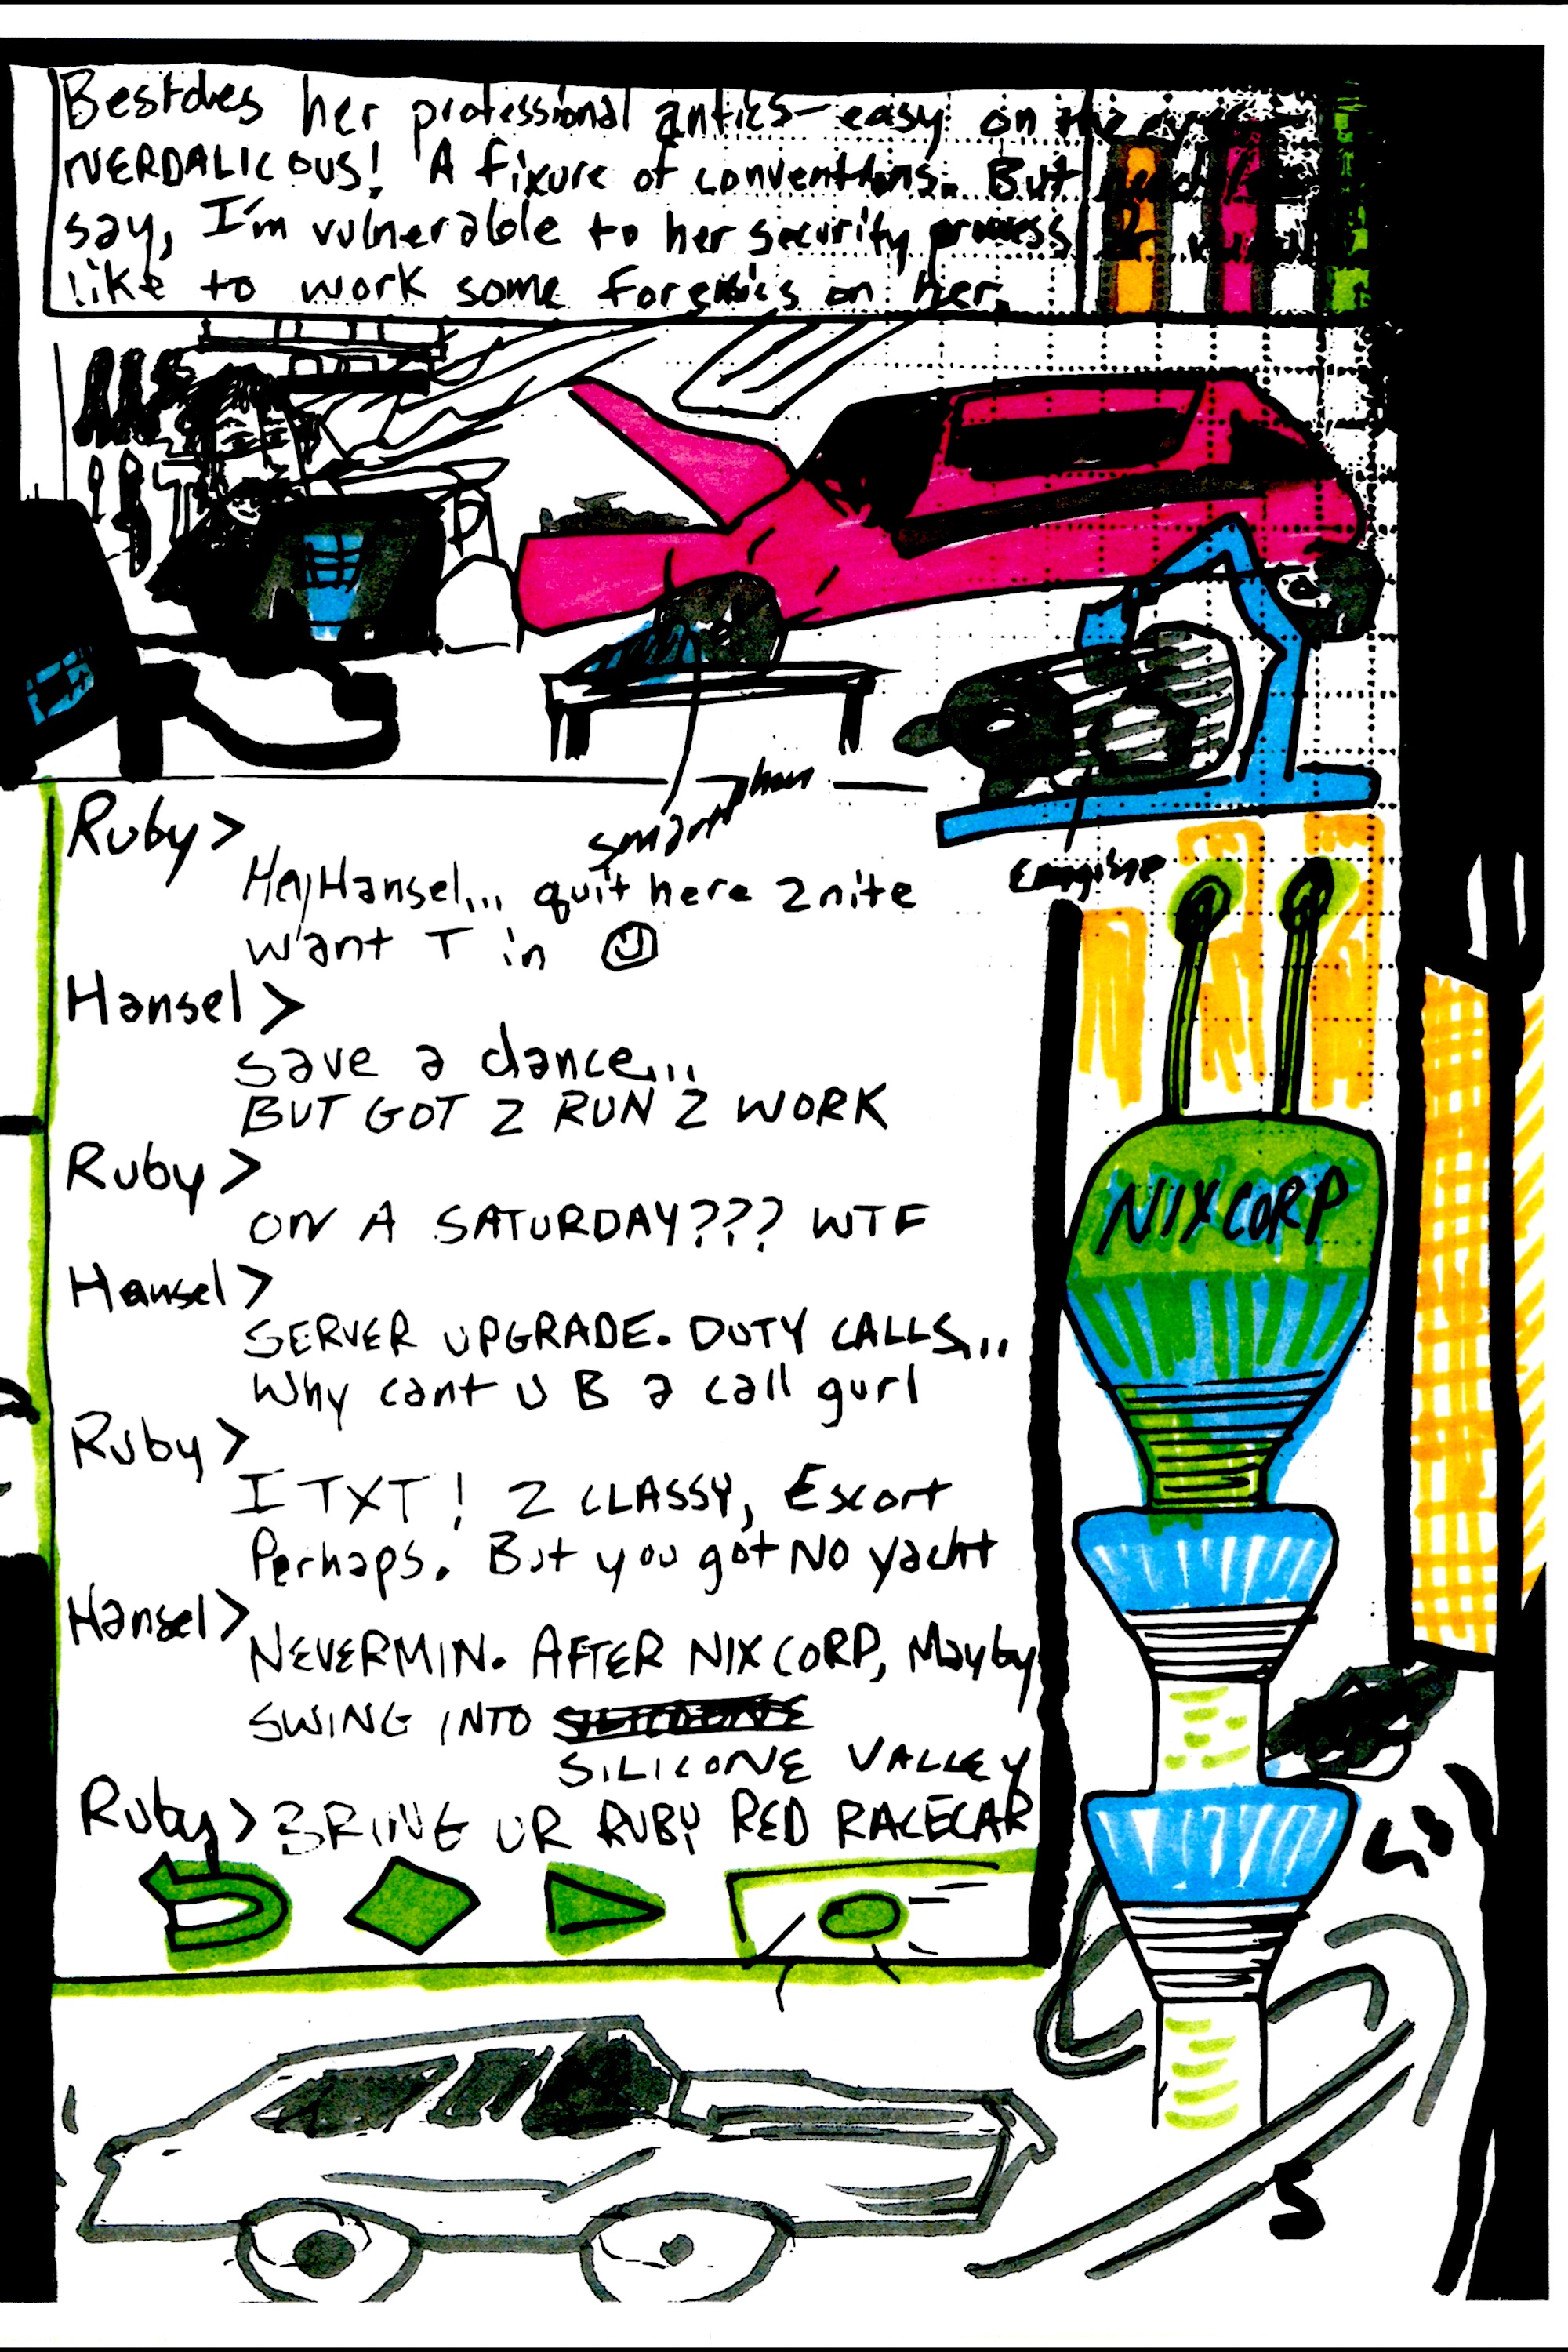 Besides her professional antics— easy on the
NERDALICOUS! A fixure of conventions. But
say, I'm vulnerable to her security process
like to work some forensics on her.
Ruby>
smart
Hey Hansel... quit here 2nite
engine
want T in
Hansel>
save a dance...
BUT GOT 2 RUN 2 WORK
Ruby>
ON A SATURDAY??? WTF
NIXCORP
Hansel>
SERVER UPGRADE. DUTY CALLS...
Why cant U B a call gurl
Ruby>
I TXT! 2 CLASSY, Escort
Perhaps. But you got NO yacht
Hansel>
NEVERMIN. AFTER NIXCORP, Mayby
SWING INTO
SILICONE VALLEY
Ruby> BRING UR RUBY RED RACECAR